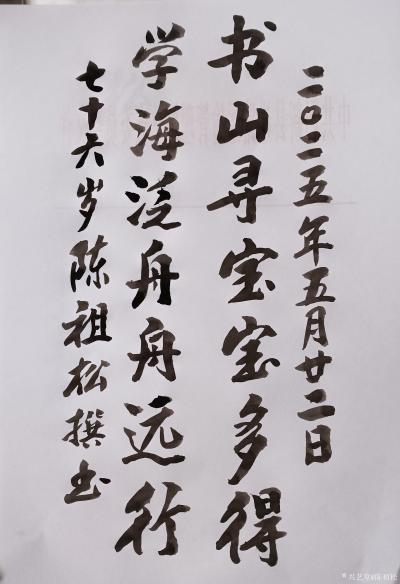 二〇二五年五月廿二日
书山寻宝宝多得
学海泛舟舟远行
七十六岁陈祖松撰书